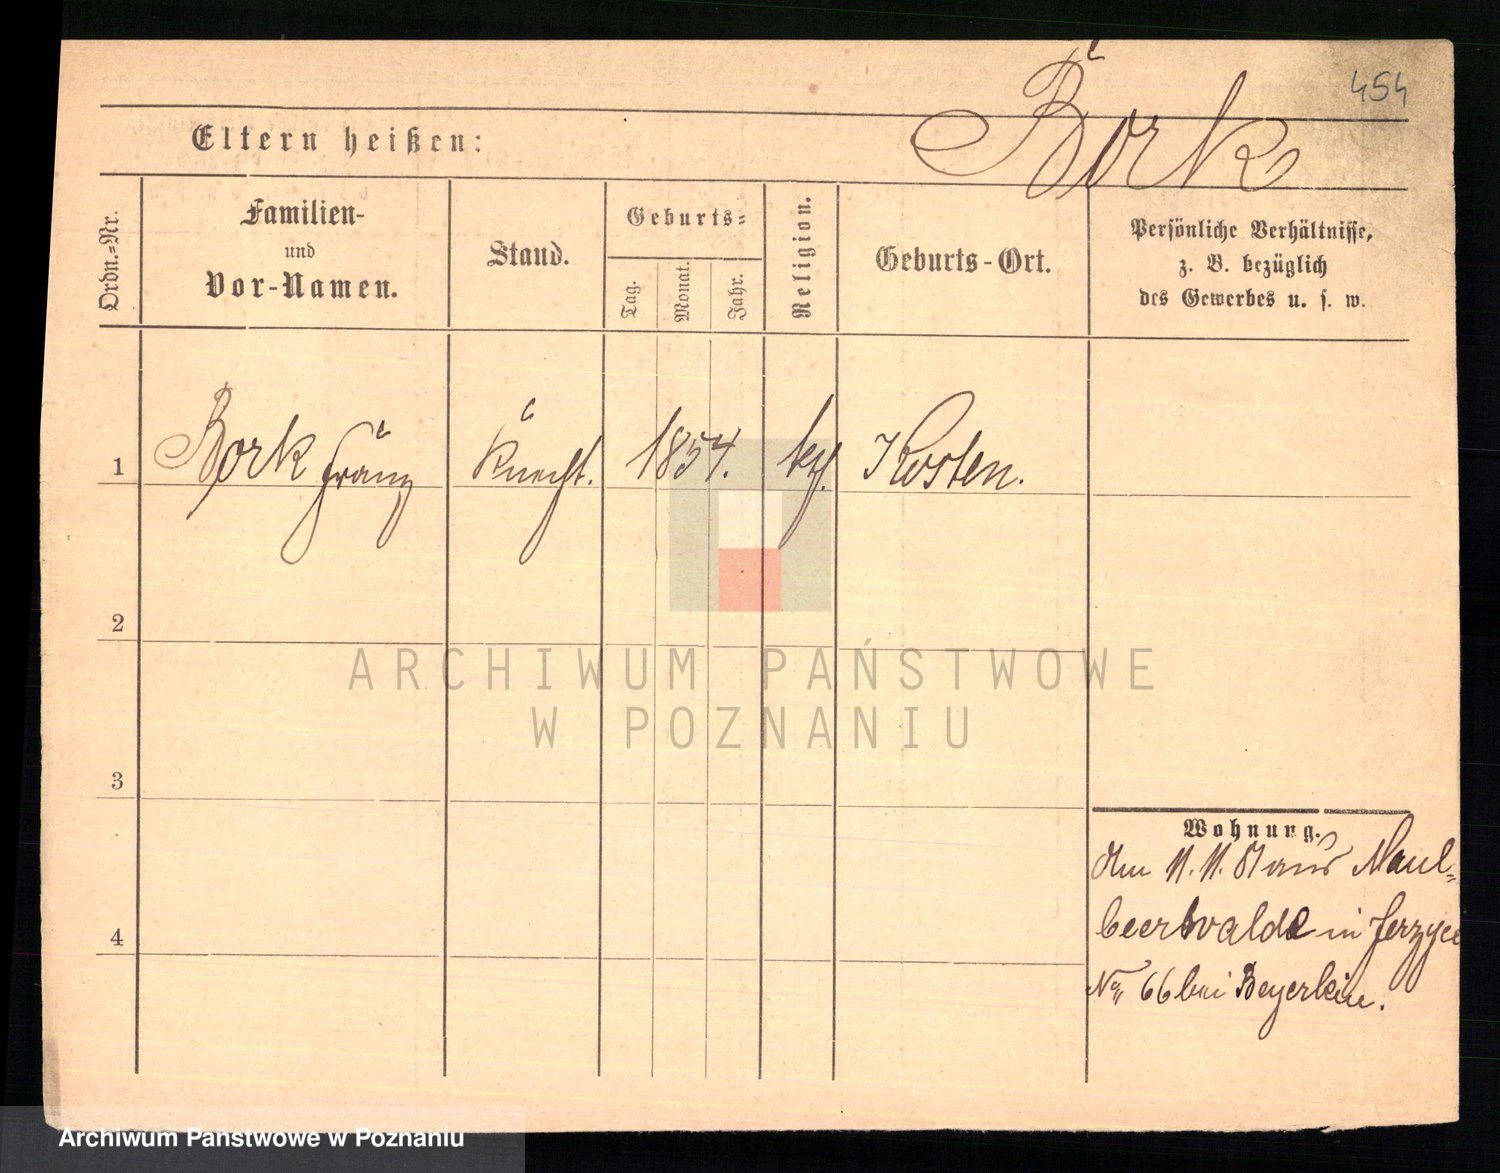 454
Bork
Eltern heißen:
Ordn.=Nr.
Familien-
und
Vor-Namen.
Stand.
Geburts=
Tag.
Monat.
Jahr.
Religion.
Geburts-Ort.
Persönliche Verhältnisse,
z. B. bezüglich
des Gewerbes u. s. w.
1 Bork Franz Knecht. 1854. kf. Kosten.
2
3
4
ARCHIWUM PAŃSTWOWE
W POZNANIU
Wohnung.
Maul=
beerwalde in Jerzyce
No 66 bei Beyerlein.
Archiwum Państwowe w Poznaniu